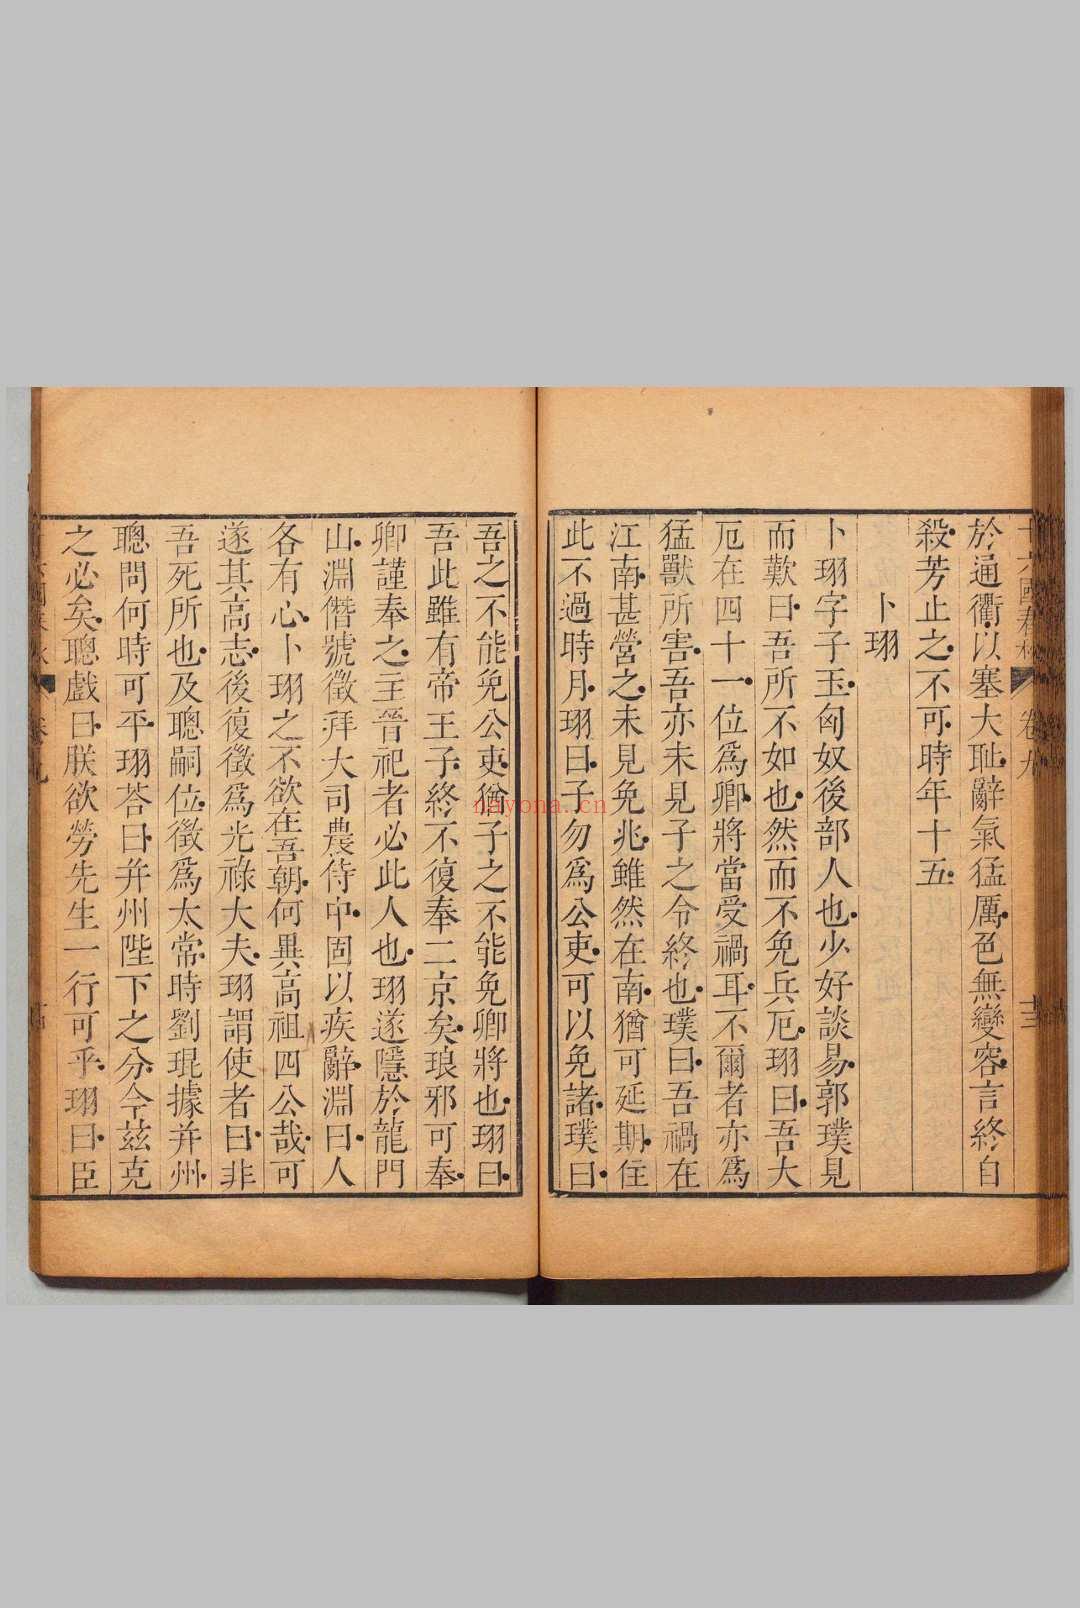 十六國春秋 卷九 十三
於通衢以塞大耻辭氣猛厲色無變容言終自
殺芳止之不可時年十五
卜珝
卜珝字子玉匈奴後部人也少好談易郭璞見
而歎曰吾所不如也然而不免兵厄珝曰吾大
厄在四十一位爲卿將當受禍耳不爾者亦爲
猛獸所害吾亦未見子之令終也璞曰吾禍在
江南甚營之未見免兆雖然在南猶可延期住
此不過時月珝曰子勿爲公吏可以免諸璞曰
吾之不能免公吏猶子之不能免卿將也珝曰
吾此雖有帝王子終不復奉二京矣琅邪可奉
卿謹奉之主晉祀者必此人也珝遂隱於龍門
山淵僭號徵拜大司農侍中固以疾辭淵曰人
各有心卜珝之不欲在吾朝何異高祖四公哉可
遂其高志後復徵爲光祿大夫珝謂使者曰非
吾死所也及聰嗣位徵爲太常時劉琨據并州
聰問何時可平珝荅曰并州陛下之分今茲克
之必矣聰戲曰朕欲勞先生一行可乎珝曰臣
nayona.cn